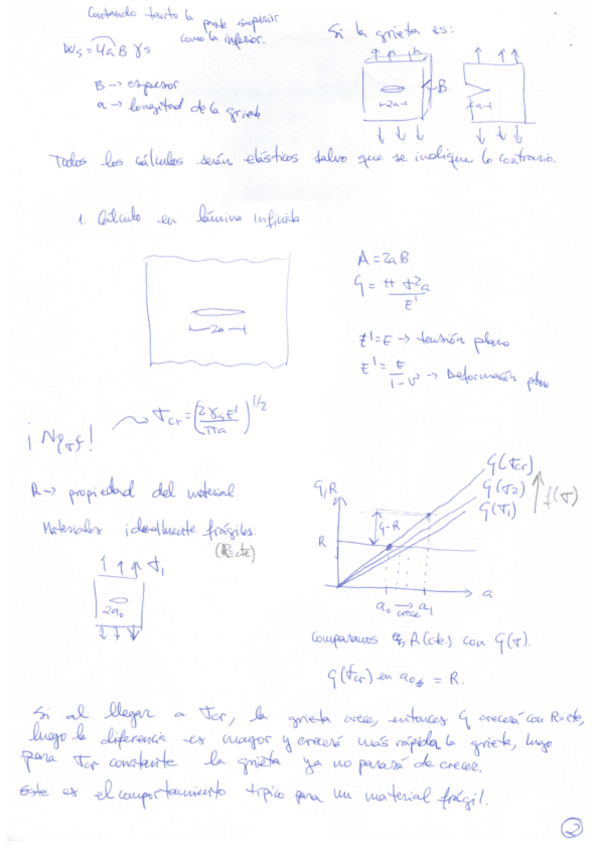 Contando tanto la parte superior
como la inferior.
Ws = 4aB γs
B → espesor
a → longitud de la grieta
Si la grieta es:
B.
2a
a
Todos los cálculos serán elásticos salvo que se indique lo contrario.
1. Cálculo en lámina infinita
2a
A = 2aB
G = πσ²a / E'
E' = E → tensión plana
E' = E / (1-υ²) → Deformación plana
σcr = (2γsE' / πa)^1/2
R → propiedad del material
Materiales idealmente frágiles:
(R=cte)
σ1
2a0
G,R
G(σcr)
G(σ2)
G(σ1)
f(σ)
G-R
R
a0 → a1
crece
a
Comparamos R(cte.) con G(σ).
G(σcr) en a0 = R.
Si al llegar a σcr, la grieta crece, entonces G crecerá con R=cte,
luego la diferencia es mayor y crecerá más rápida la grieta, luego
para σcr constante la grieta ya no parará de crecer.
Este es el comportamiento típico para un material frágil.
2